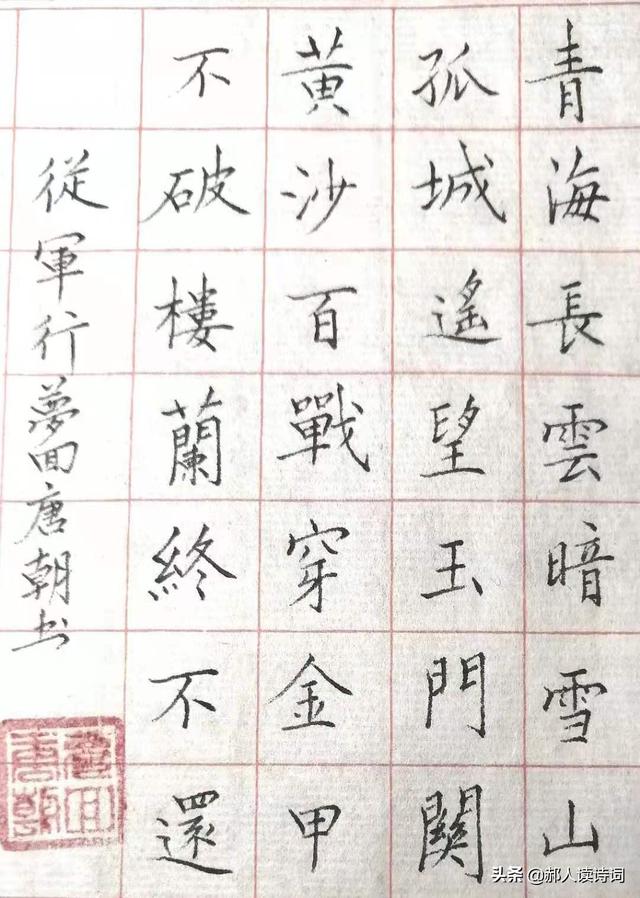 青海長雲暗雪山
孤城遙望玉門關
黃沙百戰穿金甲
不破樓蘭終不還
從軍行夢回唐朝书
头条@郝人读诗词